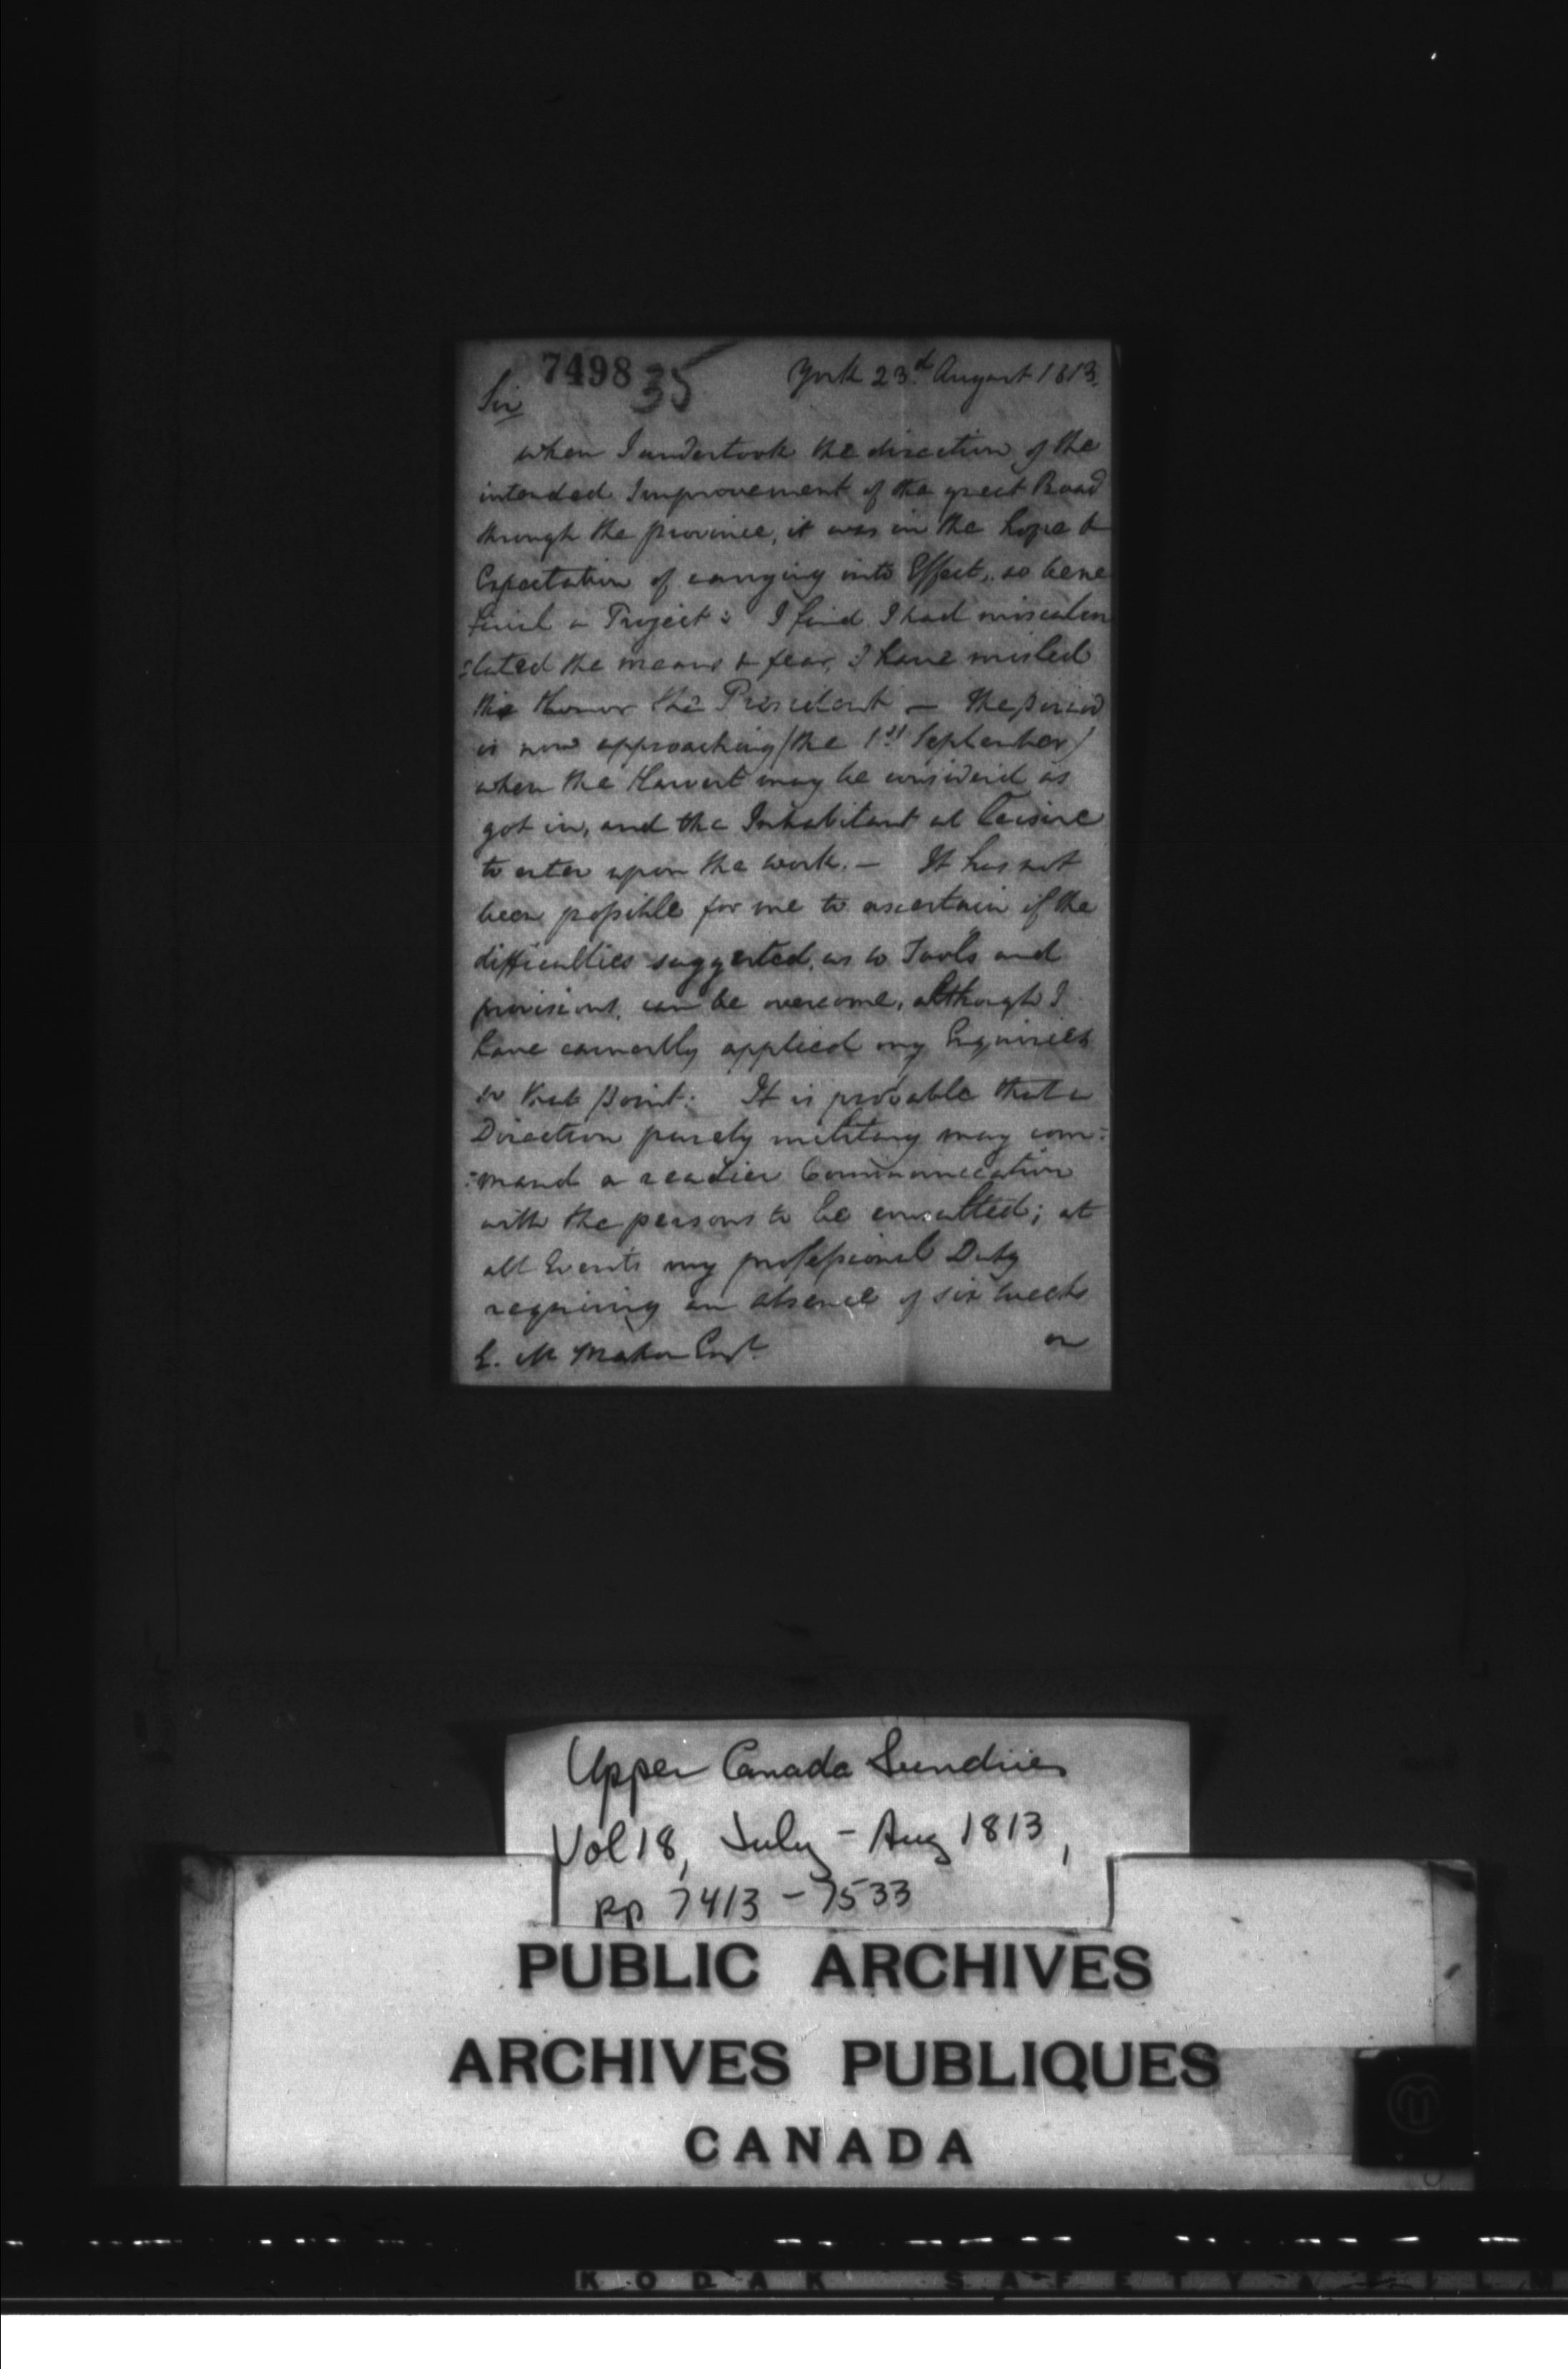 7498 35 York 23.d August 1813.
Sir
when I undertook the direction of the
intended Improvement of the great Road
through the province, it was in the hope &
Expectation of carrying into Effect, so bene
ficial a Project: I find I had miscalcu
:lated the means & fear, I have misled
his Honor the President — The period
is now approaching (the 1st September)
when the Harvest may be considered as
got in, and the Inhabitant at leisure
to enter upon the work. — It has not
been possible for me to ascertain if the
difficulties suggested, as to Tools and
provisions, can be overcome, although I
have earnestly applied my Enquiries
to that point: It is probable that a
Direction purely military may com:
:mand a readier Communication
with the persons to be consulted; at
all Events my professional Duty
requiring an absence of six weeks
or
E. McMahon Esqr.
Upper Canada Sundries
Vol 18, July - Aug 1813,
pp 7413 - 7533
PUBLIC ARCHIVES
ARCHIVES PUBLIQUES
CANADA
KODAK SAFETY FILM